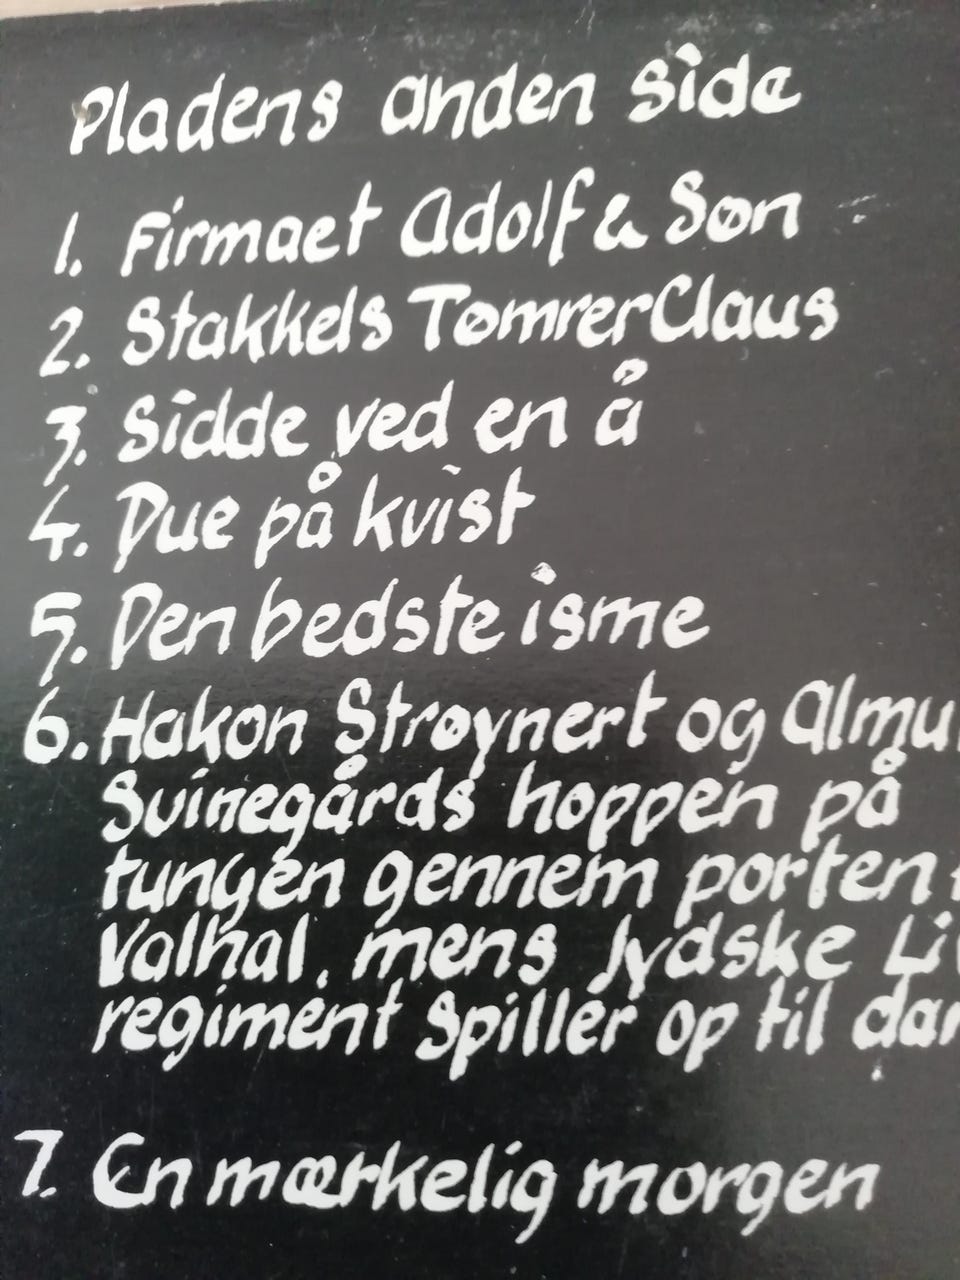 Pladens anden side
1. Firmaet Adolf & Søn
2. Stakkels TømrerClaus
3. Sidde ved en å
4. Due på kvist
5. Den bedste isme
6. Hakon Strøynert og
Svinegårds hoppen på
tungen gennem porten
Valhal, mens Jydske
regiment spiller op til
7. En mærkelig morgen